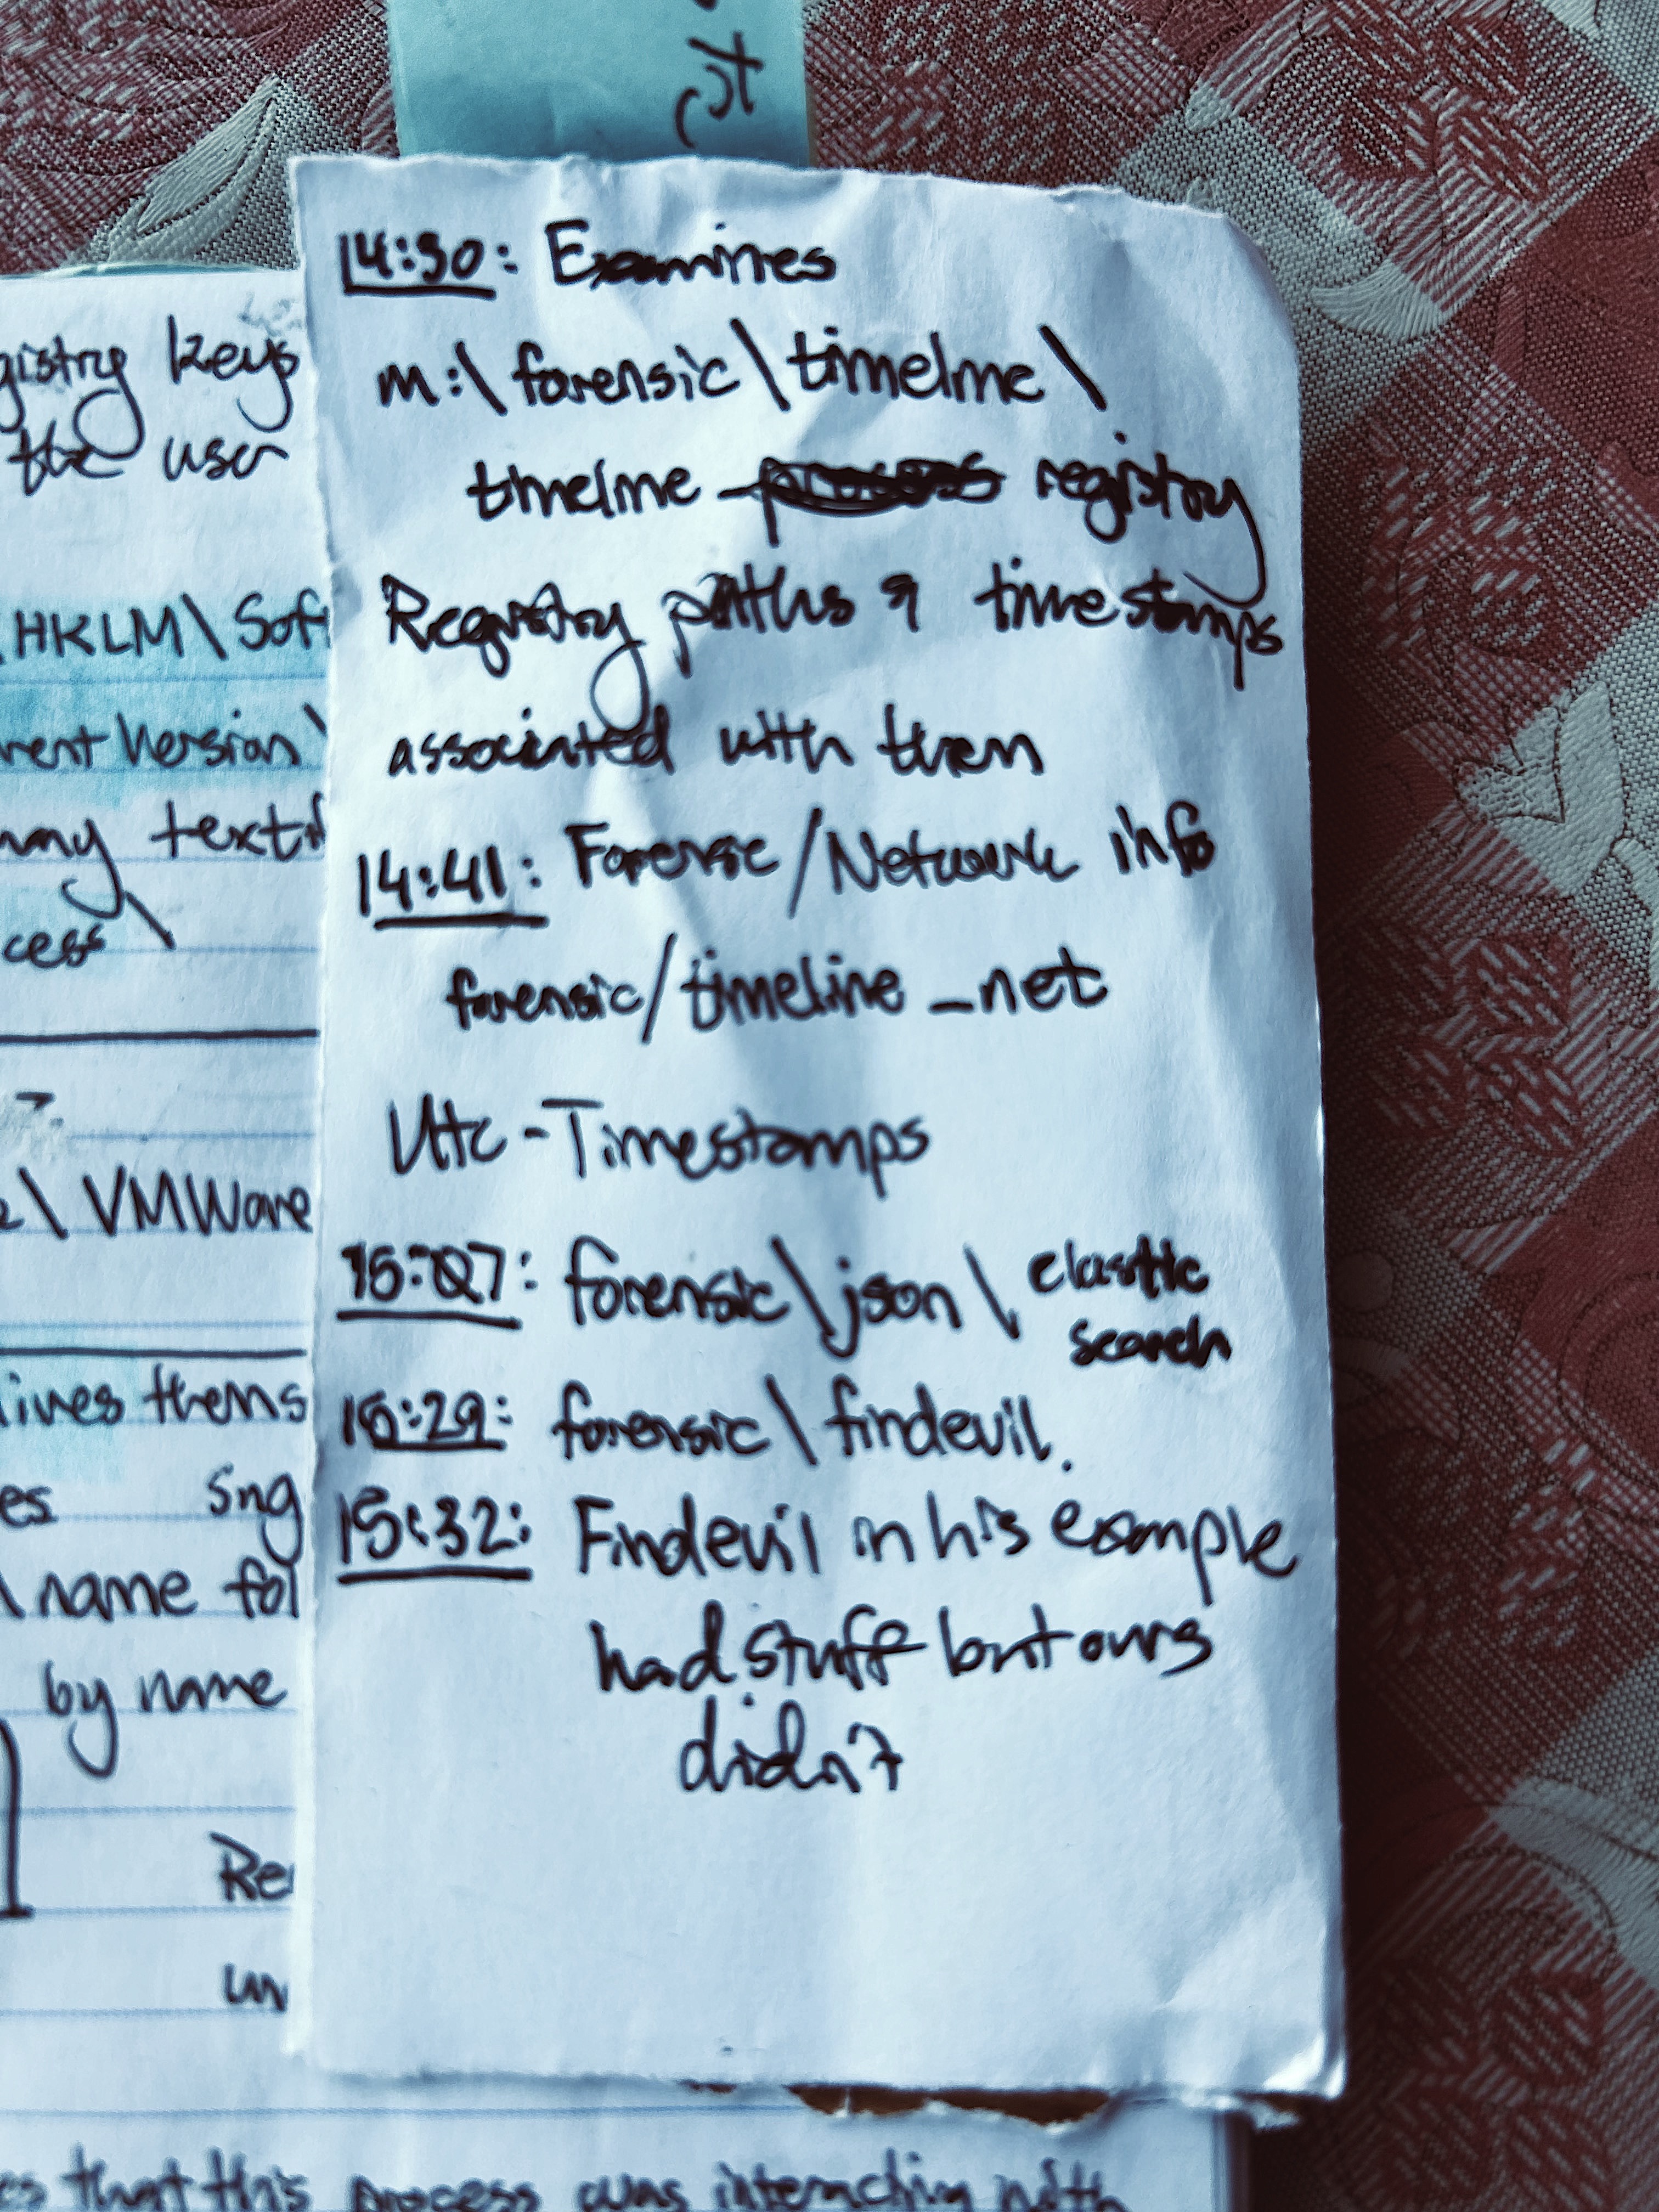 14:30: Examines
m:\forensic\timeline\
timeline registry
Registry paths & timestamps
associated with them
14:41: Forensic/Network info
forensic/timeline_net
Utc-Timestamps
15:27: forensic\json\elastic
search
15:29: forensic\findevil.
15:32: Findevil in his example
had stuff but ours
didn't
gistry keys
the user
HKLM\Soft
rent Version\
my textf
cess\
e\VMWare
lives thems
es sng
\name fol
by name
Re
un
es that this process was interacting with